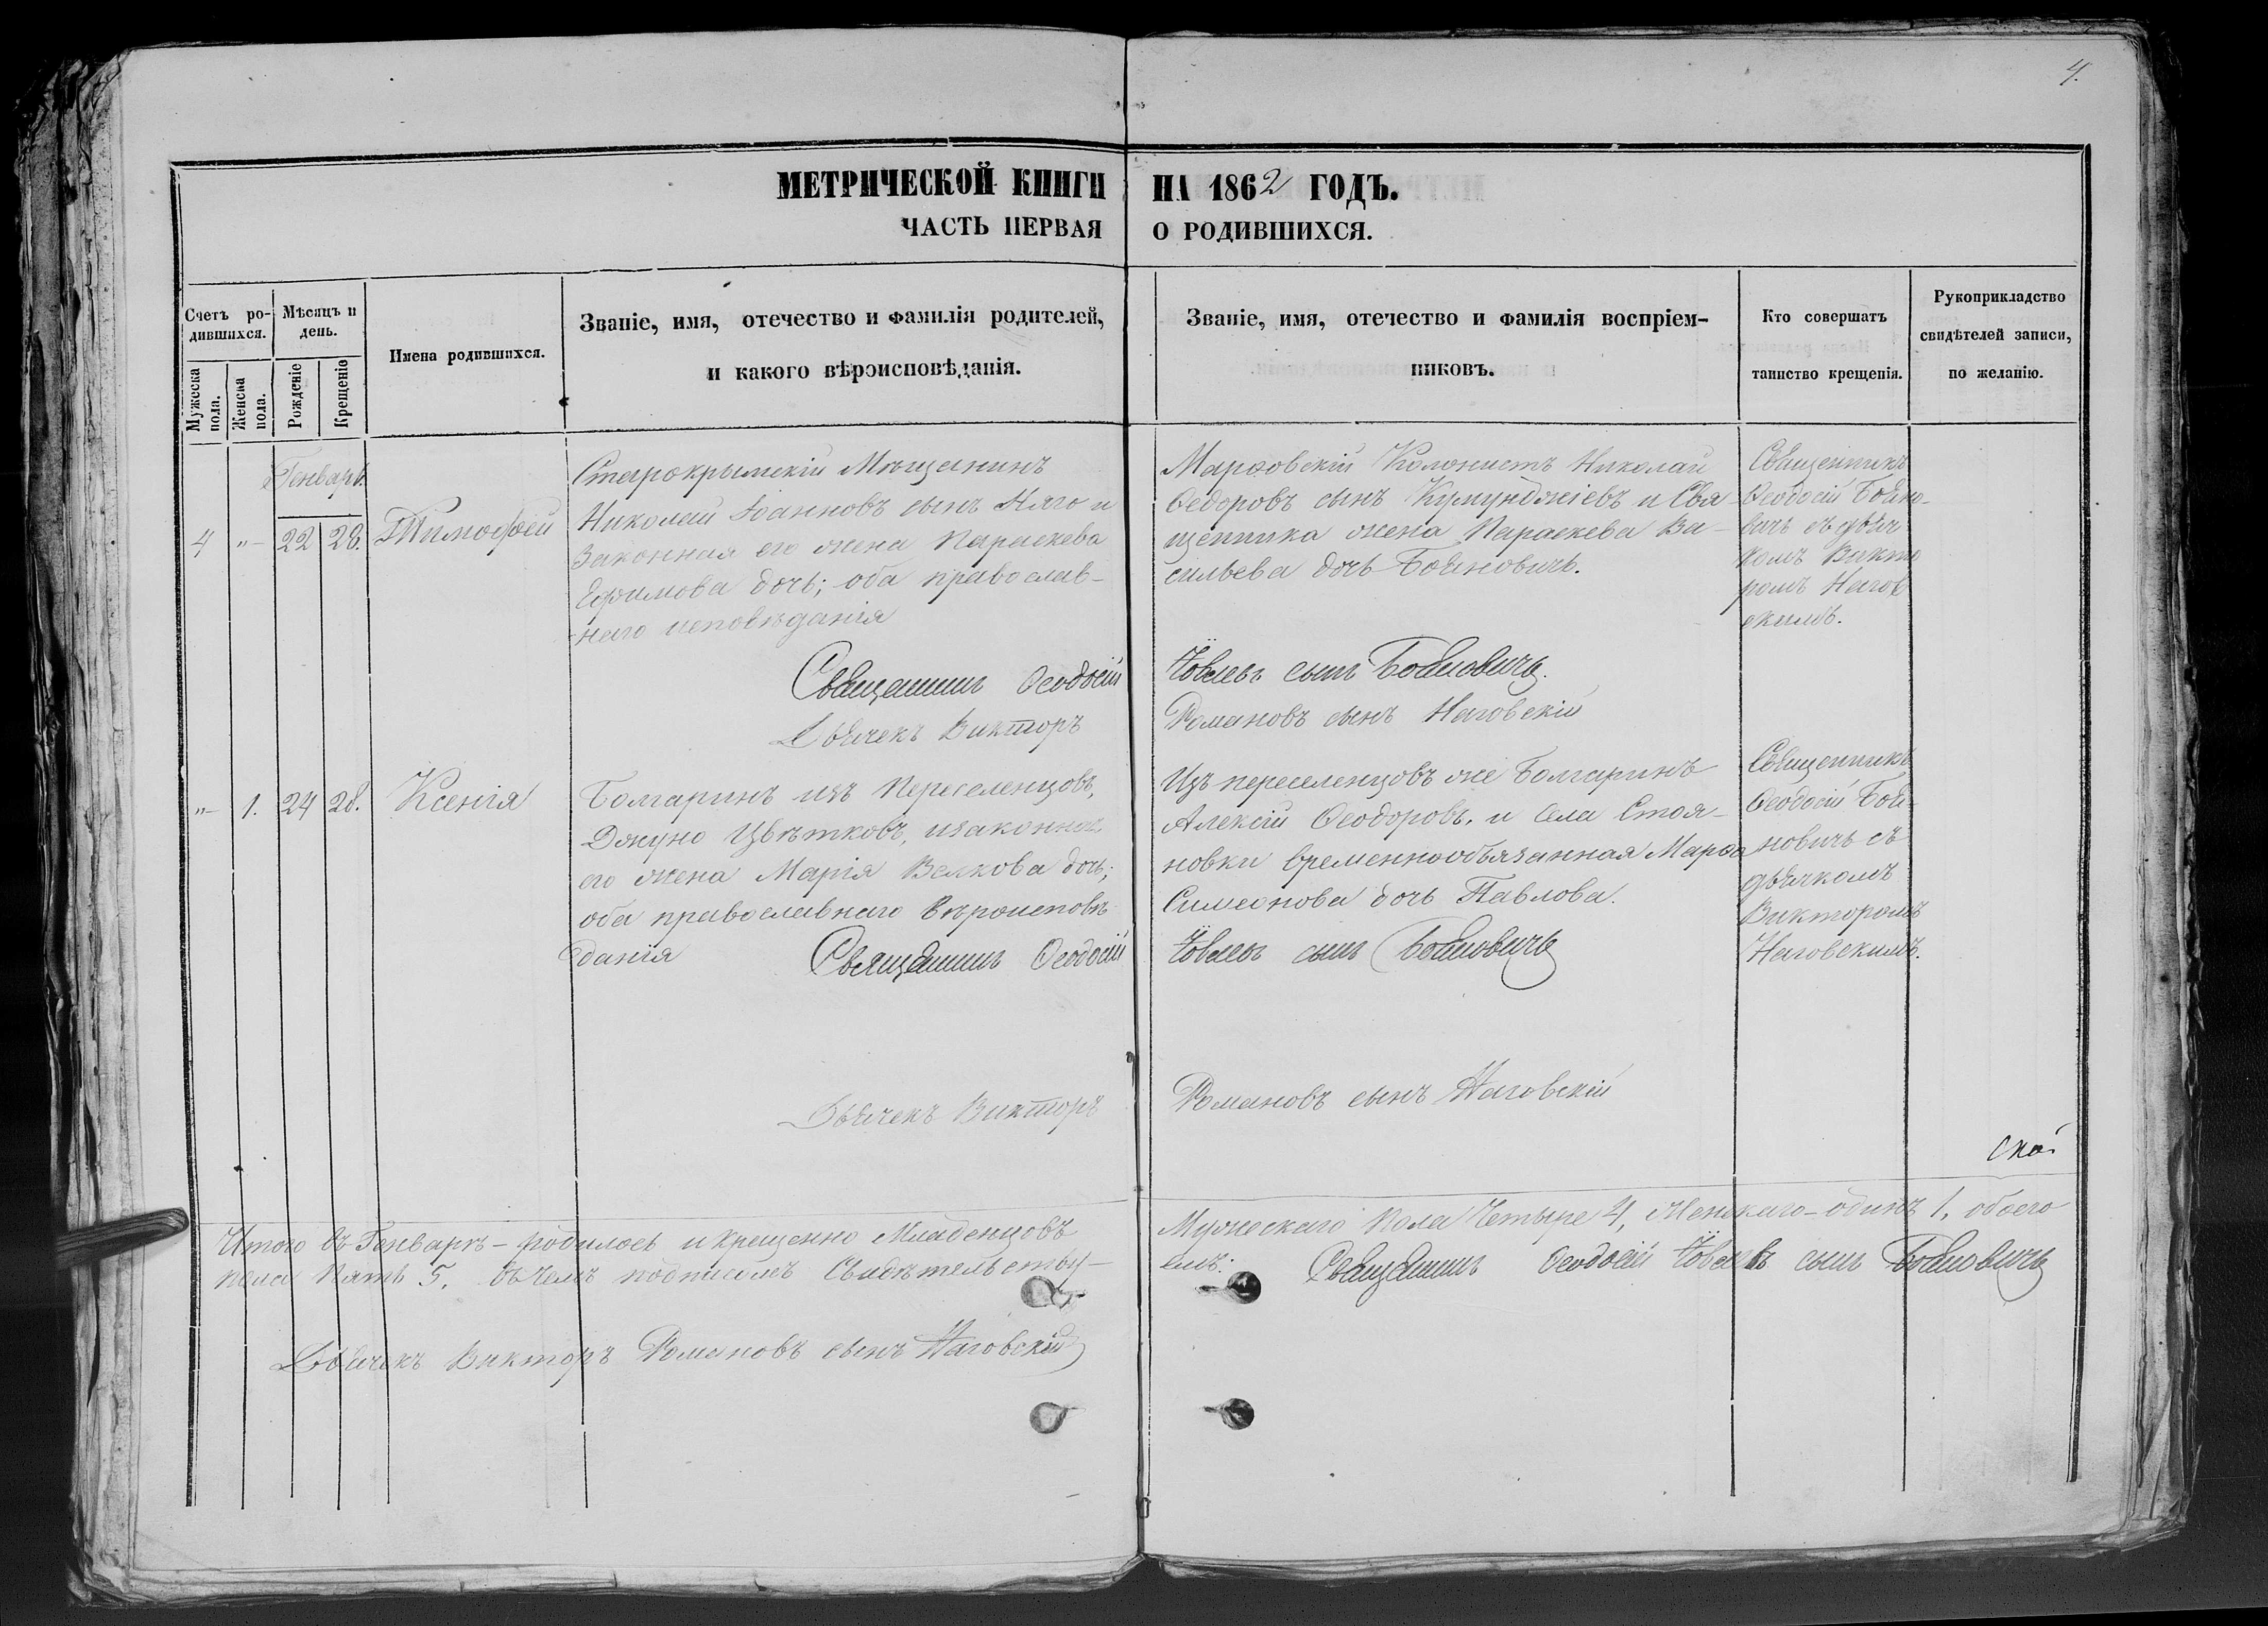 4.
МЕТРИЧЕСКОЙ КНИГИ НА 1862 ГОДЪ.
ЧАСТЬ ПЕРВАЯ О РОДИВШИХСЯ.
Счетъ ро-
дившихся.
Мужеска
пола.
Женска
пола.
Мѣсяцъ и
день.
Рожденіе
Крещеніе
Имена родившихся.
Званіе, имя, отечество и фамилія родителей,
и какого вѣроисповѣданія.
Званіе, имя, отечество и фамилія воспріем-
никовъ.
Кто совершатъ
таинство крещенія.
Рукоприкладство
свидѣтелей записи,
по желанію.
Генварь.
4 „ 22 28. Тимофей
Старокрымскій Мѣщанинъ
Николай Іоанновъ сынъ Няго и
Законная его жена Параскева
Ефимова дочь; оба православ-
наго исповѣданія
Марфовскій Колонистъ Николай
Ѳедоровъ сынъ Кумунджіевъ и Свя-
щенника жена Параскева Ва-
сильева дочь Боиновичъ.
Священникъ
Ѳеодосій Бойно-
вичъ съ дьяч
комъ Викто
ромъ Нагов
скимъ.
Священникъ Ѳеодосій Іовлевъ сынъ Бойновичъ.
Дьячекъ Викторъ Романовъ сынъ Наговскій
„ 1. 24 28. Ксенія
Болгаринъ изъ Переселенцовъ,
Джуно Цвѣтковъ, изаконная
его жена Марія Велкова дочь;
оба православнаго вѣроисповѣ
данія
Изъ переселенцовъ же Болгаринъ
Алексій Ѳеодоровъ. и Села Стоя-
новки временнообязанная Марфа
Симеонова дочь Павлова.
Священникъ
Ѳеодосій Бой-
новичъ съ
дьячкомъ
Викторомъ
Наговскимъ.
Священникъ Ѳеодосій Іовлевъ сынъ Бойновичъ
Дьячекъ Викторъ Романовъ сынъ Наговскій
Итого въ Генварѣ - родилось и крещенно Младенцовъ Мужескаго Пола Четыре 4, Женскаго - одинъ 1, обоего
пола Пять 5. въ чемъ подписомъ Свидѣтельству- емъ: Священникъ Ѳеодосій Іовлевъ сынъ Бойновичъ
Дьячекъ Викторъ Романовъ сынъ Наговскій